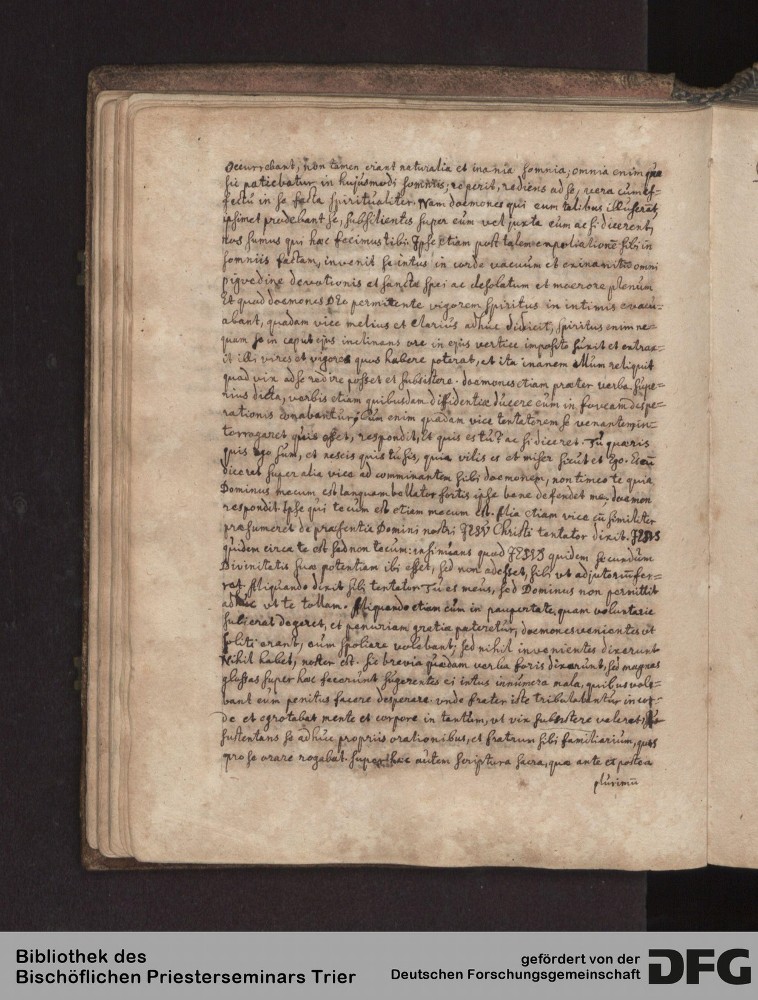 Occurrebant, non tamen erant naturalia et inania somnia; omnia enim quæ
sic patiebatur in hujusmodi somniis, reperit, rediens ad se, vera cum ef-
fectu in se facta spiritualiter. Nam daemones qui eum talibus illuserāt,
ipsimet prodebant se, subsilientes super eum vel juxta eum ac si dicerent,
Nos sumus qui hæc fecimus tibi. Ipse etiam post talem expoliationē sibi in
somniis factam, invenit se intus in corde vacuum et exinanitū omni
pigvedine devotionis et sanctæ spei ac desolatum et moerore plenum
Et quod daemones DEo permittente vigorem spiritus in intimis evacu-
abant, quadam vice melius et clarius adhuc didicit, spiritus enim ne-
quam se in caput ejus inclinans ore in ejus vertice imposito suxit et extrax-
it illi vires et vigores quos habere poterat, et ita inanem illum reliquit
quod vix ad se redire posset et subsistere. daemones etiam præter verba supe-
rius dicta, verbis etiam quibusdam diffidentiæ ducere eum in foveam despe-
rationis conabantur, Cum enim quadam vice tentatorem se venantem in-
terrogaret quis esset, respondit, Et quis es tu? ac si diceret. Tu quæris
quis ego sum, et nescis quis tu sis, quia vilis es et miser sicut et Ego. Et cū
diceret super alia vice ad comminantem sibi daemonem, non timeo te quia
Dominus mecum est tanquam bellator fortis ipse bene defendet me, daemon
respondit Ipse qui tecum est etiam mecum est. Alia etiam vice cū similiter
præsumeret de præsentia Domini nostri JESU Christi tentator dixit. JESUS
quidem circa te est sed non tecum: insinuans quod JESUS quidem secundum
Divinitatis suæ potentiam ibi esset, sed non adesset, sibi ut adjutoriū fer-
ret Aliquando dixit sibi tentator Tu es meus, sed Dominus non permittit
adhuc ut te tollam. Aliquando etiam cum in paupertate, quam voluntarie
subierat degeret, et penuriam gratiæ pateretur, daemones venientes ut
soliti erant, eum spoliare volebant, sed nihil invenientes dixerunt
Nihil habet, noster est. Sic brevia quædam verba foris dixerunt, sed magnas
glossas super hæc fecerunt sugerentes ei intus innumera mala, quibus vole-
bant eum penitus facere desperare. vnde frater iste tribulabatur in cor-
de et egrotabat mente et corpore in tantum, ut vix subsistere valeret,
sustentans se adhuc propriis orationibus, et fratrum sibi familiarium, quos
pro se orare rogabat. Super hæc autem scriptura sacra, quæ ante et postea
plurimū
Bibliothek des
Bischöflichen Priesterseminars Trier
gefördert von der
Deutschen Forschungsgemeinschaft
DFG